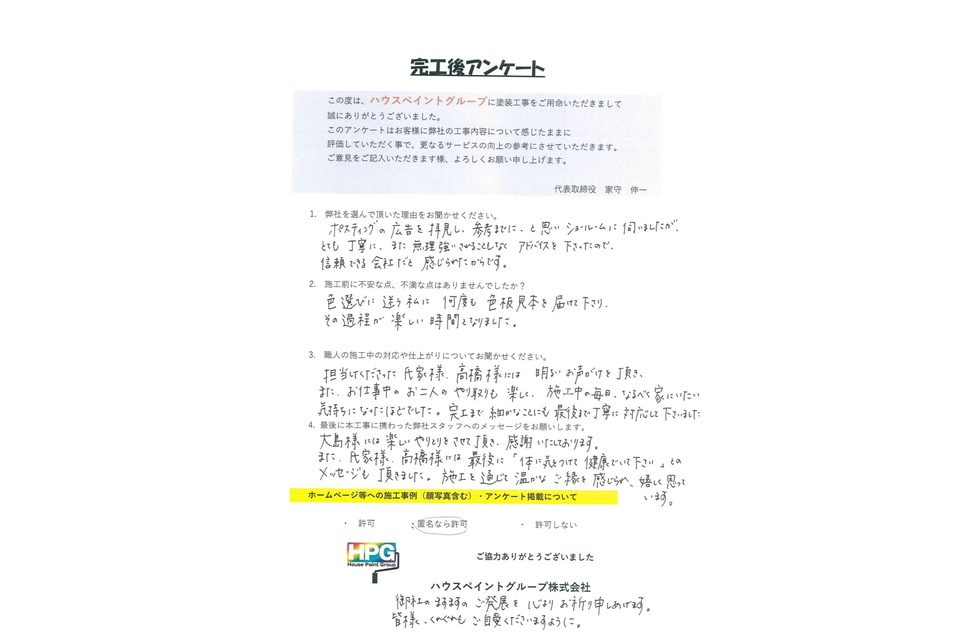 完工後アンケート
この度は、ハウスペイントグループに塗装工事をご用命いただきまして
誠にありがとうございました。
このアンケートはお客様に弊社の工事内容について感じたままに
評価していただく事で、更なるサービスの向上の参考にさせていただきます。
ご意見をご記入いただきます様、よろしくお願い申し上げます。
代表取締役　家守　伸一
1.　弊社を選んで頂いた理由をお聞かせください。
ポスティングの広告を拝見し、参考までに、と思いショールームに伺いましたが、
とても丁寧に、また無理強いされることもなくアドバイスを下さったので、
信頼できる会社だと感じられたからです。
2.　施工前に不安な点、不満な点はありませんでしたか？
色選びに迷う私に何度も色板見本を届けて下さり、
その過程が楽しい時間となりました。
3.　職人の施工中の対応や仕上がりについてお聞かせください。
担当してくださった氏家様、高橋様には明るいお声がけを頂き、
また、お仕事中のお二人のやり取りも楽しく、施工中の毎日、なるべく家にいたい
気持ちになったほどでした。完工まで細かなことにも最後まで丁寧に対応して下さいました
4.　最後に本工事に携わった弊社スタッフへのメッセージをお願いします。
大島様には楽しいやりとりをさせて頂き、感謝いたしております。
また、氏家様、高橋様には最後に「体に気をつけて健康でいて下さい」との
メッセージも頂きました。施工を通じて温かなご縁を感じられ、嬉しく思って
います。
ホームページ等への施工事例（顔写真含む）・アンケート掲載について
・　許可　　・匿名なら許可　　・　許可しない
HPG
House Paint Group
ご協力ありがとうございました
ハウスペイントグループ株式会社
御社のますますのご発展を心よりお祈り申しあげます。
皆様、くれぐれもご自愛くださいますように。